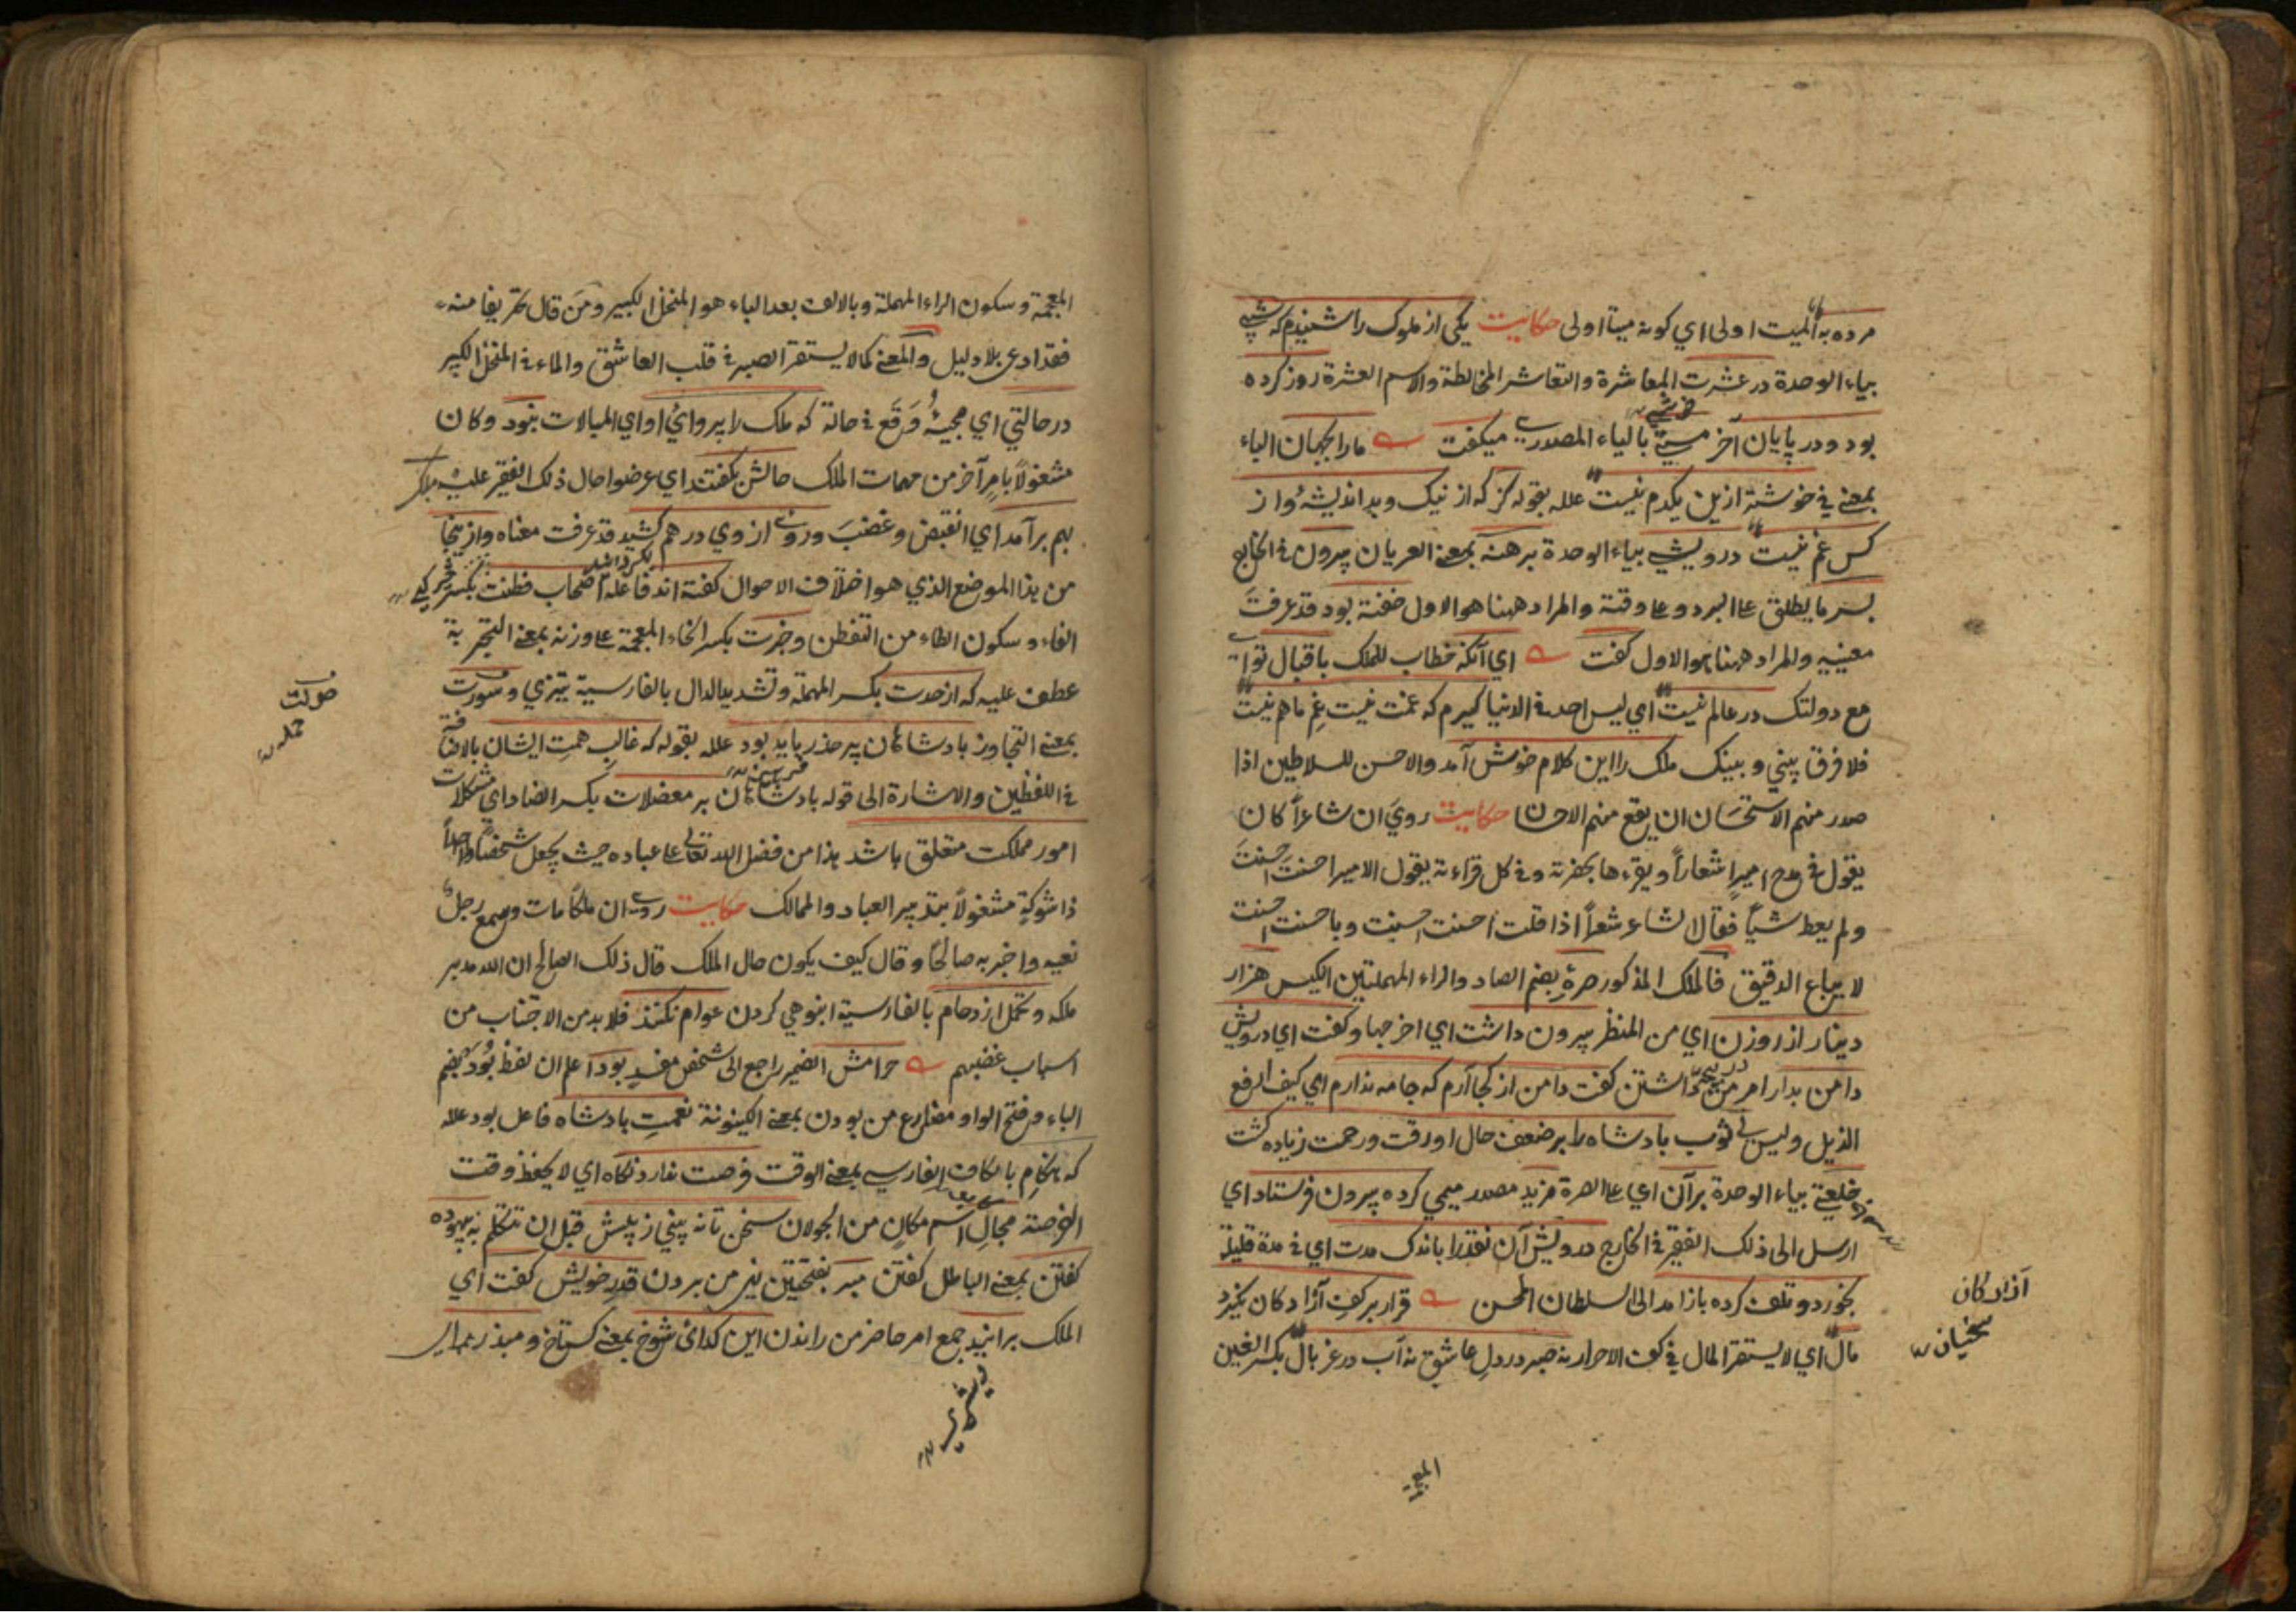 مرده به المیت اولی ای کونه میتا اولی حکایت یکی از ملوک را شنیدم که شبی
بیاء الوحدة در عشرت المعاشرة والتعاشر المخالطة والاسم العشرة روز کرده
بود ودر پایان آخر مستی بالیاء المصدری میکفت ما را بجهان الباء
بمعنی فی خوشتر ازین یکدم نیست علله بقوله کز که از نیک وبد اندیشه واز
کس غم نیست درویشی بیاء الوحدة برهنه بمعنی العریان بیرون فی الخارج
بسرما یطلق علی البرد وعلی وقته والمراد ههنا هو الاول خفته بود قد عرفت
معنییه والمراد ههنا هو الاول کفت ای آنکه خطاب للملک باقبال تو ای
مع دولتک در عالم نیست ای لیس احد فی الدنیا کیرم که غمت نیست غم ما هم نیست
فلا فرق بینی وبینک ملک را این کلام خوش آمد والاحسن للسلاطین اذا
صدر منهم الاستحسان ان یقع منهم الاحسان حکایت روی ان شاعرا کان
یقول فی مدح امیر اشعارا ویقرءها بحضرته وفی کل قراءته یقول الامیر احسنت احسنت
ولم یعط شیئا فقال الشاعر شعرا اذا قلت احسنت احسنت وباحسنت احسنت
لا یباع الدقیق فالملک المذکور صرة بضم الصاد والراء المهملتین الکیس هزار
دینار از روزن ای من المنظر بیرون داشت ای اخرجها وکفت ای درویش
دامن بدار امر من داشتن کفت دامن از کجا آرم که جامه ندارم ای کیف ارفع
الذیل ولیس لی ثوب بادشاه را بر ضعف حال او رقت ورحمت زیاده کشت
خلعتی بیاء الوحدة بر آن ای علی الصرة مزید مصدر میمی کرده بیرون فرستاد ای
ارسل الی ذلک الفقیر فی الخارج درویش آن نقد را باندک مدت ای فی مدة قلیلة
بخورد وتلف کرده باز آمد الی السلطان المحسن قرار بر کف آزادکان نکیرد
مال ای لا یستقر المال فی کف الاحرار نه صبر در دل عاشق نه آب در غربال بکسر الغین
آزادکان
سخیان
المعجمة
المعجمة وسکون الراء المهملة وبالالف بعد الباء هو المنخل الکبیر ومن قال تحریفا منه
فقد ادعی بلا دلیل والمعنی کما لا یستقر الصبر فی قلب العاشق والماء فی المنخل الکبیر
در حالتی ای مجیئه وقع فی حالة که ملک را پروای او ای المبالات نبود وکان
مشغولا بامر آخر من مهمات الملک حالش بکفتند ای عرضوا حال ذلک الفقیر علیه ملک
بهم بر آمد ای انقبض وغضب وروی از وی درهم کشید قد عرفت معناه واز ینجا
من هذا الموضع الذی هو اختلاف الاحوال کفته اند فاعله اصحاب فطنت بکسر
الفاء وسکون الطاء من التفطن وخبرت بکسر الخاء المعجمة علی وزنه بمعنی التجربة
عطف علیه که از حدت بکسر المهملة وتشدید الدال بالفارسیة تیزی وسورت
بمعنی التجاوز بادشاهان پر حذر باید بود علله بقوله که غالب همت ایشان بالاضافة
فی اللفظین والاشارة الی قوله بادشاهان بر معضلات بکسر الضاد ای مشکلات
امور مملکت متعلق باشد هذا من فضل الله تعالی علی عباده حیث یجعل شخصا واحدا
ذا شوکة مشغولا بتدبیر العباد والممالک حکایت روی ان ملکا مات وسمع رجل
نعیه واخبر به صالحا وقال کیف یکون حال الملک قال ذلک الصالح ان الله مدبر
ملکه وتحمل ازدحام بالفارسیة انبوهی کردن عوام نکند فلا بد من الاجتناب من
اسباب غضبهم حرامش الضمیر راجع الی شخص مفید بود اعلم ان لفظ بود بضم
الباء وفتح الواو مضارع من بودن بمعنی الکینونة نعمت بادشاه فاعل بود علله
که هنکام بالکاف الفارسی بمعنی الوقت فرصت ندارد نکاه ای لا یحفظ وقت
الفرصة مجال اسم مکان من الجولان سخن تا نه بینی ز پیش قبل ان تتکلم به بیهوده
کفتن بمعنی الباطل کفتن مبر بفتحتین نهی من بردن قدر خویش کفت ای
الملک برانید جمع امر حاضر من راندن این کدای شوخ بمعنی کستاخ ومبذر
صولت